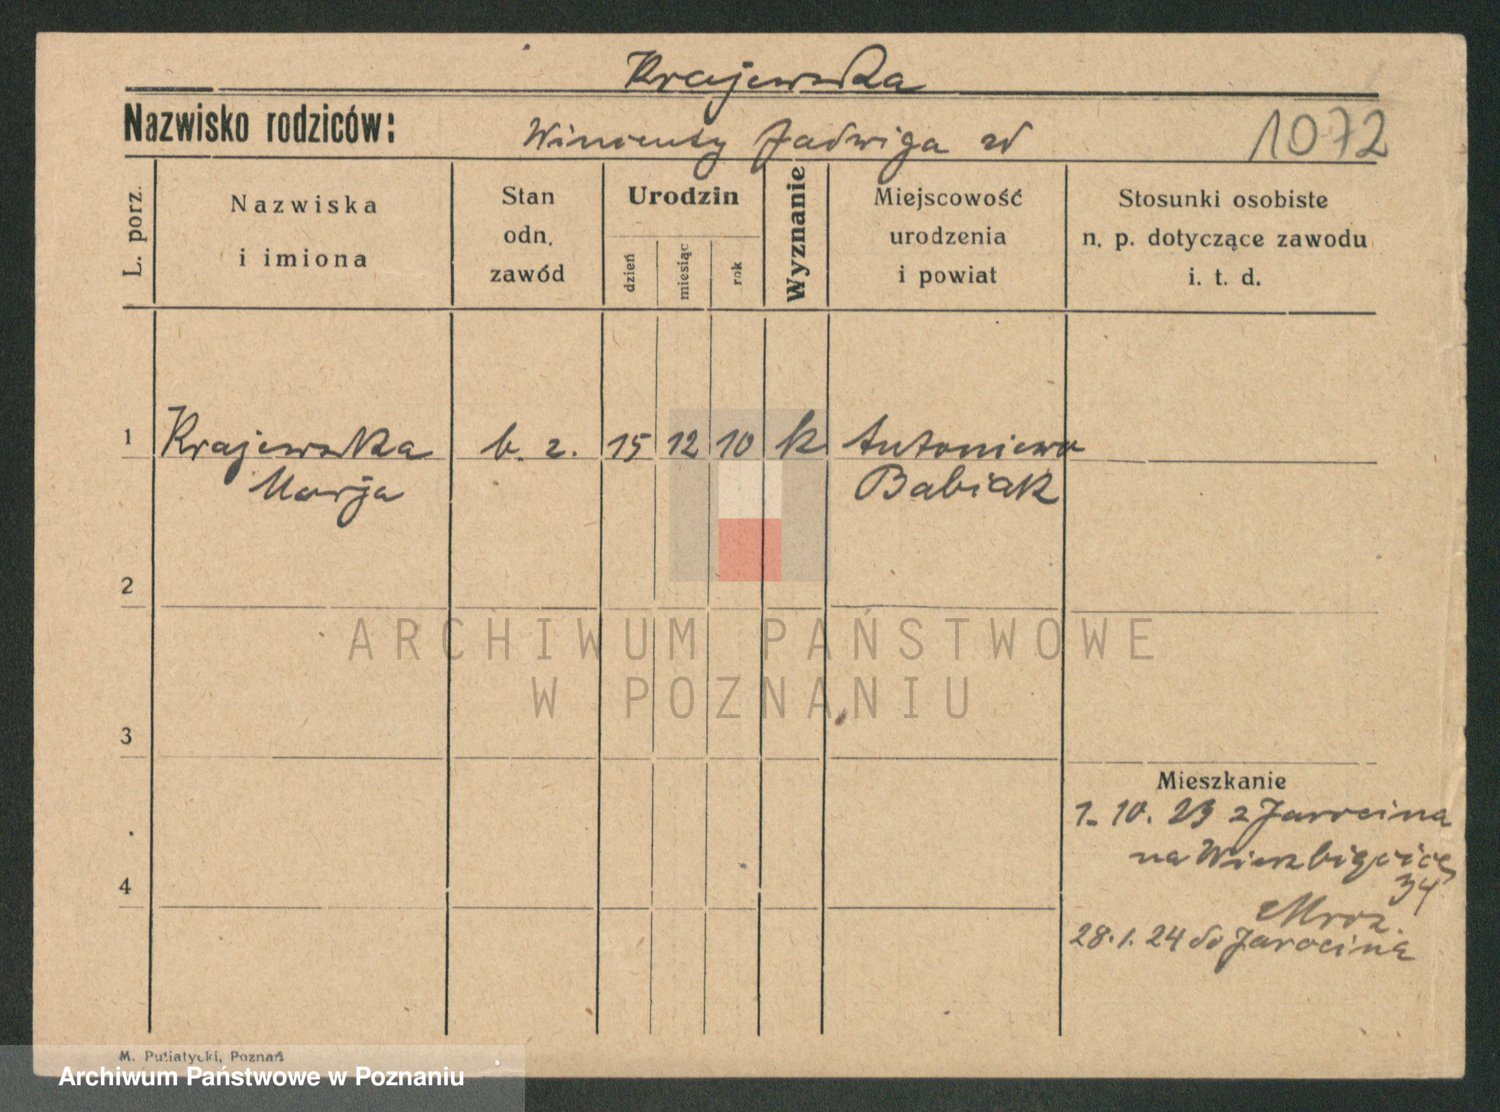 Krajewska
Nazwisko rodziców: Wincenty Jadwiga
1072
L. porz.
Nazwiska
i imiona
Stan
odn.
zawód
Urodzin
dzień
miesiąc
rok
Wyznanie
Miejscowość
urodzenia
i powiat
Stosunki osobiste
n. p. dotyczące zawodu
i. t. d.
1 Krajewska b. z. 15 12 10 k Antoniewo
Marja Babiak
2
ARCHIWUM PAŃSTWOWE
W POZNANIU
3
Mieszkanie
1. 10. 23 z Jarocina
na Wierzbięcice
34
Mroz.
4
28. 1. 24 do Jarocina
M. Putiatycki, Poznań
Archiwum Państwowe w Poznaniu